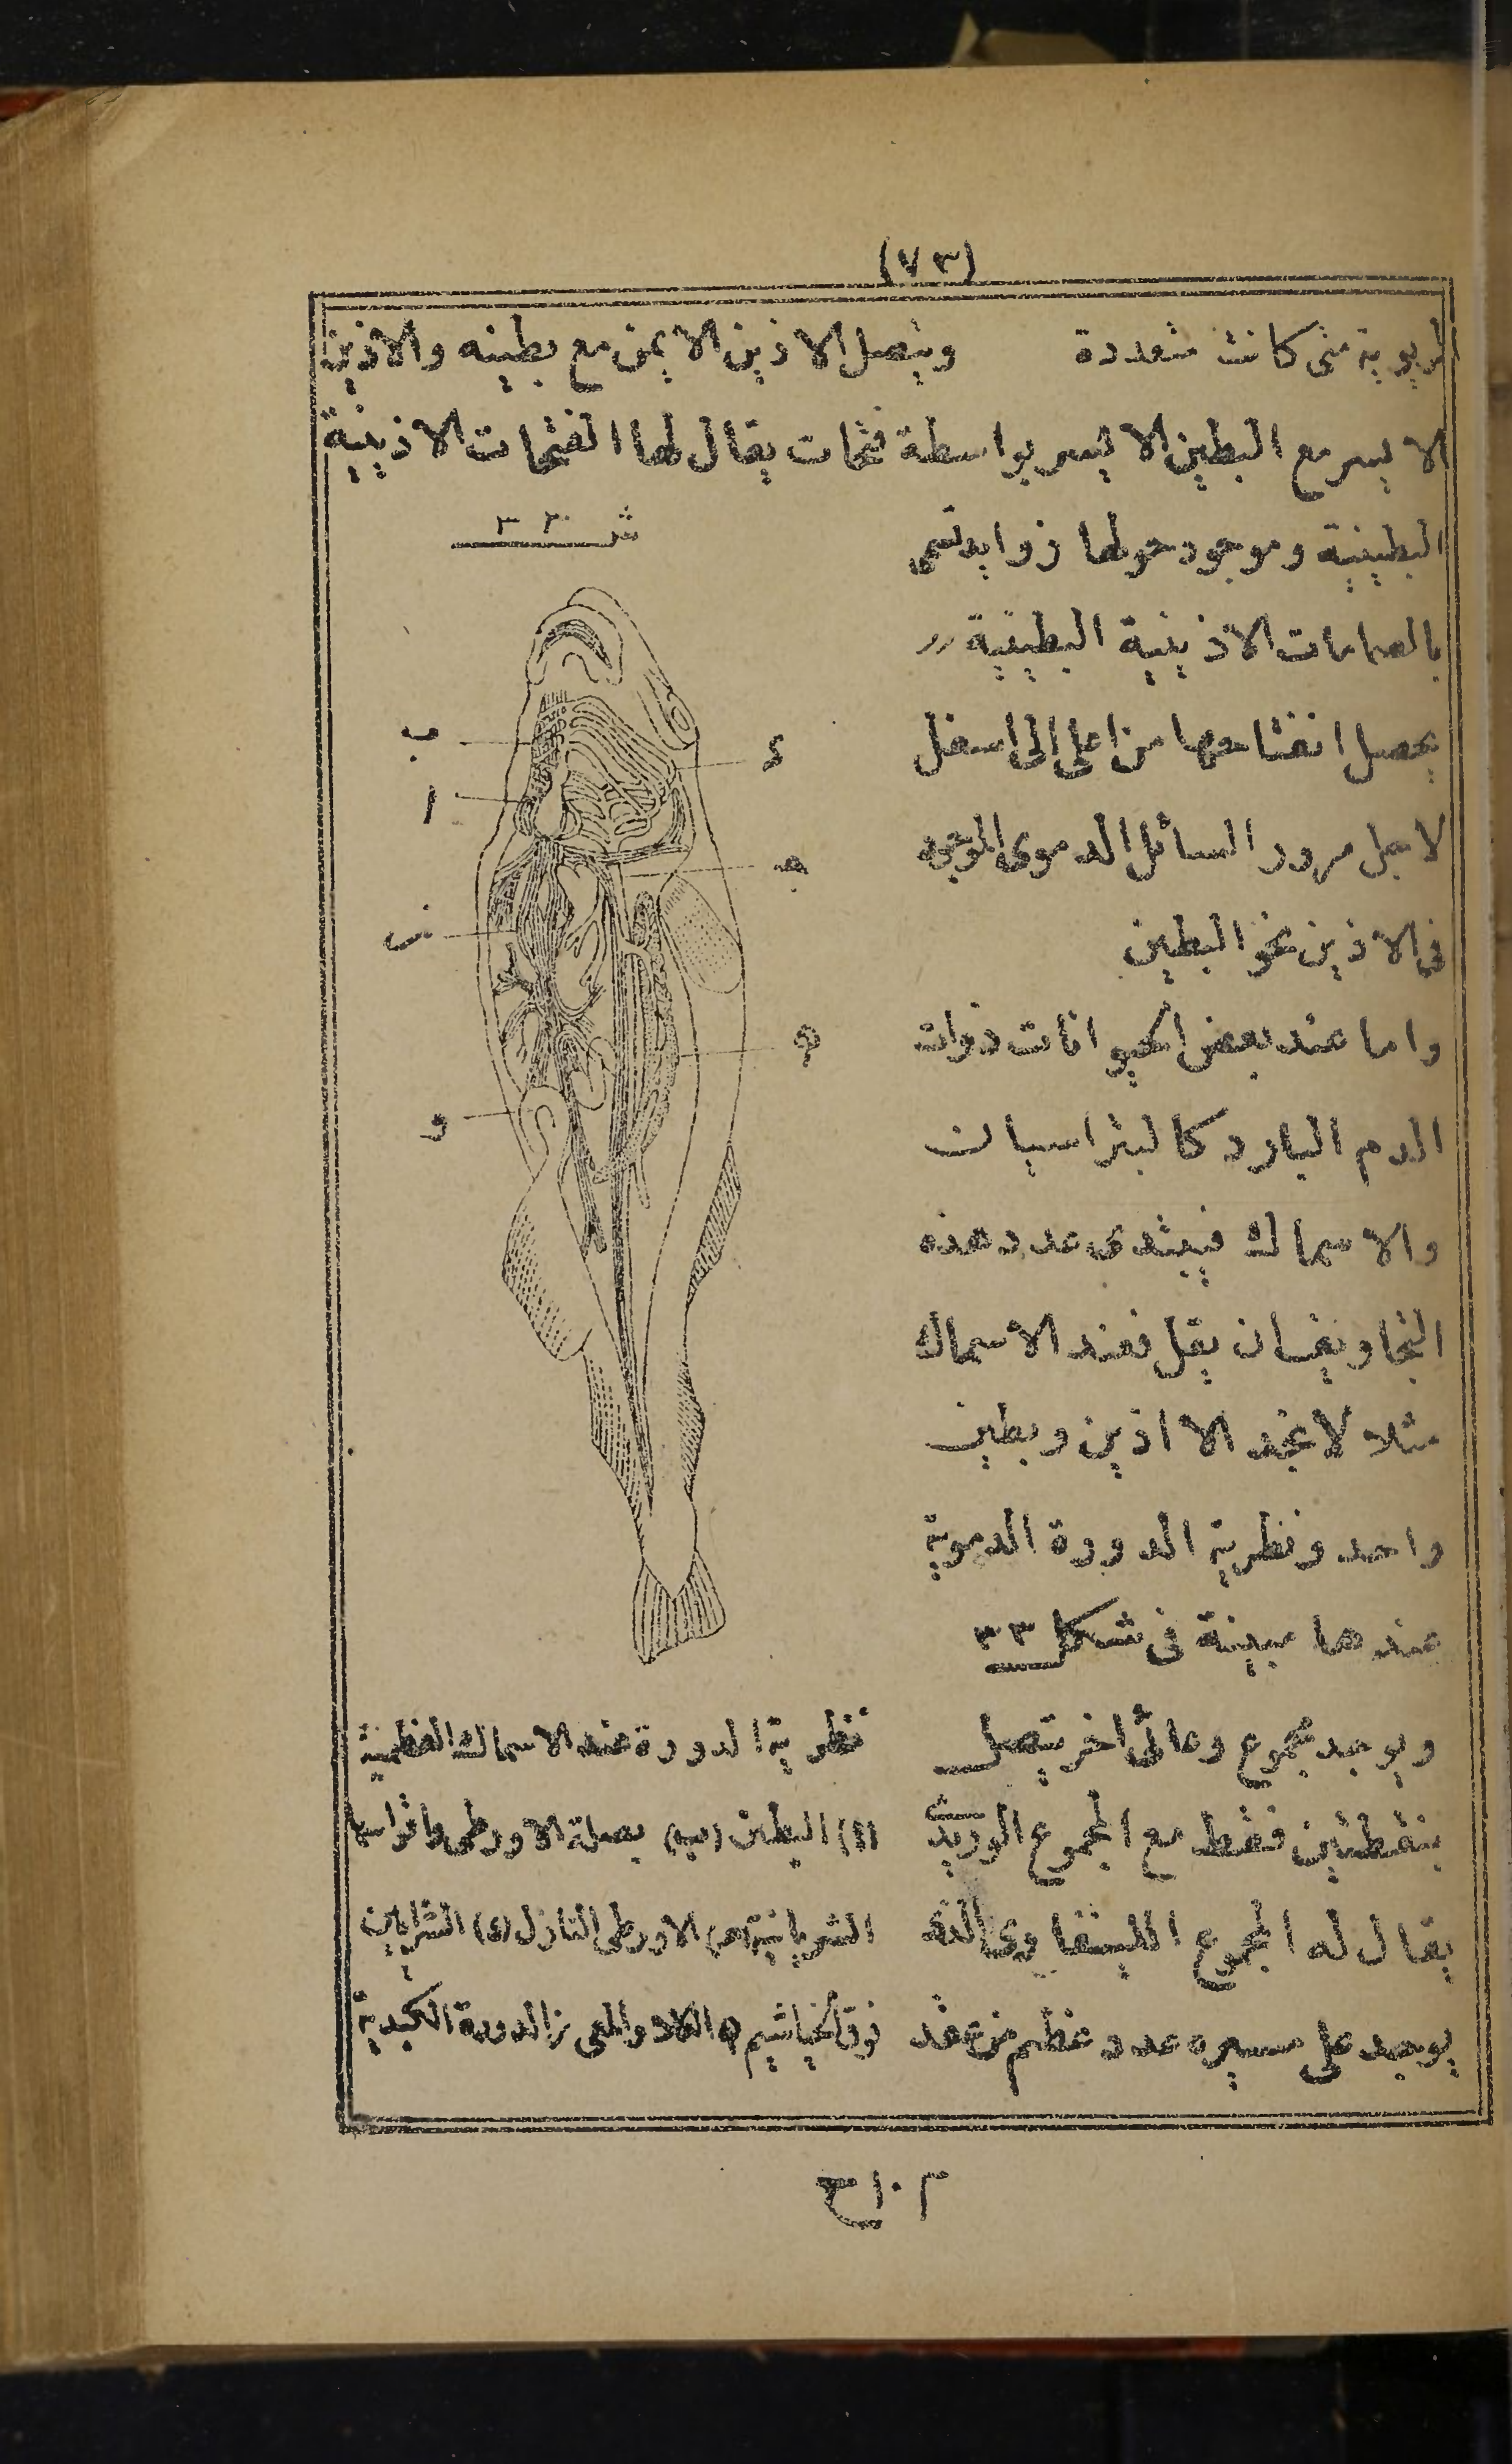 (٧٣)
الربوية متى كانت متعددة ويتصل الاذين الايمن مع بطينه والاذين
الايسر مع البطين الايسر بواسطة فتحات يقال لها الفتحات الاذينية
ش ٣٣
البطينية وموجود حولها زوايد تسمى
بالصمامات الاذينية البطينية
يحصل انفتاحها من اعلى الى اسفل
لاجل مرور السائل الدموى الموجود
فى الاذين نحو البطين
واما عند بعض الحيوانات ذوات
الدم البارد كالبتراسيان
والاسماك فيبتدى عدد هذه
التجاويف ان يقل فعند الاسماك
مثلا لا نجد الا اذين وبطين
واحد ونظرية الدورة الدموية
عندها مبينة فى شكل ٣٣
ويوجد مجموع وعائى اخر يتصل
بنقطتين فقط مع المجموع الوريدى
يقال له المجموع اللينفاوى الذى
يوجد على مسيره عدد عظيم من عقد
ب
ا
ز
و
ء
ج
ه
نظرية الدورة عند الاسماك العظمية
(ا) البطين (ب) بصلة الاورطى واقواسها
الشريانية (ج) الاورطى النازل (ء) الشرايين
فوق الخياشيم والمعى ز الدورة الكبدية
م ١٠ ح